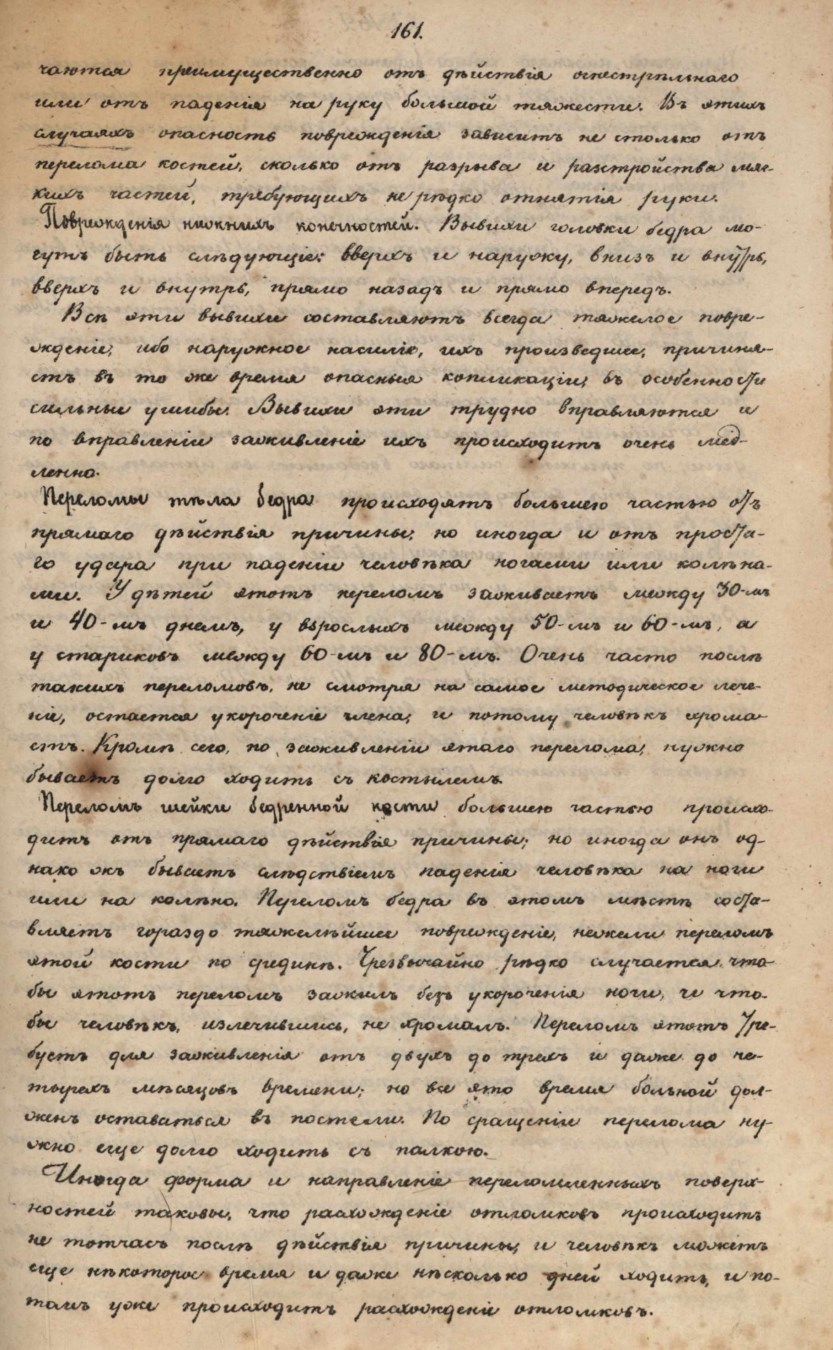 161.
чаются преимущественно отъ дѣйствія огнестрѣльнаго
или отъ паденія на руку большой тяжести. Въ этихъ
случаяхъ опасность поврежденія зависитъ не столько отъ
перелома костей, сколько отъ разрыва и разстройства мяг-
кихъ частей, требующихъ не рѣдко отнятія руки.
Поврежденія нижнихъ конечностей. Вывихи головки бедра мо-
гутъ быть слѣдующіе: вверхъ и наружу, внизъ и внутрь,
вверхъ и внутрь, прямо назадъ и прямо впередъ.
Всѣ эти вывихи составляютъ всегда тяжелое повре-
жденіе; ибо наружное насиліе, ихъ произведшее, причиня-
етъ въ то же время опасныя копликаціи; въ особенности
сильные ушибы. Вывихи эти трудно вправляются и
по вправленіи заживленіе ихъ происходитъ очень мед-
ленно.
Переломы тѣла бедра происходятъ большею частью отъ
прямаго дѣйствія причины; но иногда и отъ проста-
го удара при паденіи человѣка ногами или колѣна-
ми. У дѣтей этотъ переломъ заживаетъ между 30-мъ
и 40-мъ днемъ, у взрослыхъ между 50-мъ и 60-мъ, а
у стариковъ между 60-мъ и 80-мъ. Очень часто послѣ
такихъ переломовъ, не смотря на самое методическое лече-
ніе, остается укороченіе члена; и потому человѣкъ хрома-
етъ. Кромѣ сего, по заживленіи этаго перелома, нужно
бываетъ долго ходить съ костылемъ.
Переломъ шейки бедренной кости большею частью происхо-
дитъ отъ прямаго дѣйствія причины; но иногда онъ од-
нако жъ бываетъ слѣдствіемъ паденія человѣка на ноги
или на колѣно. Переломъ бедра въ этомъ мѣстѣ соста-
вляетъ гораздо тяжелѣйшее поврежденіе, нежели переломъ
этой кости по срединѣ. Чрезвычайно рѣдко случается, что-
бы этотъ переломъ зажилъ безъ укороченія ноги, и что-
бы человѣкъ, излечившись, не хромалъ. Переломъ этотъ тре-
буетъ для заживленія отъ двухъ до трехъ и даже до че-
тырехъ мѣсяцовъ времени; но все это время больной дол-
женъ оставаться въ постели. По сращеніи перелома ну-
жно еще долго ходить съ палкою.
Иногда форма и направленіе переломленныхъ поверх-
ностей таковы, что расхожденіе отломковъ происходитъ
не тотчасъ послѣ дѣйствія причины, и человѣкъ можетъ
еще нѣкоторое время и даже нѣсколько дней ходить, и по-
томъ уже происходитъ расхожденіе отломковъ.